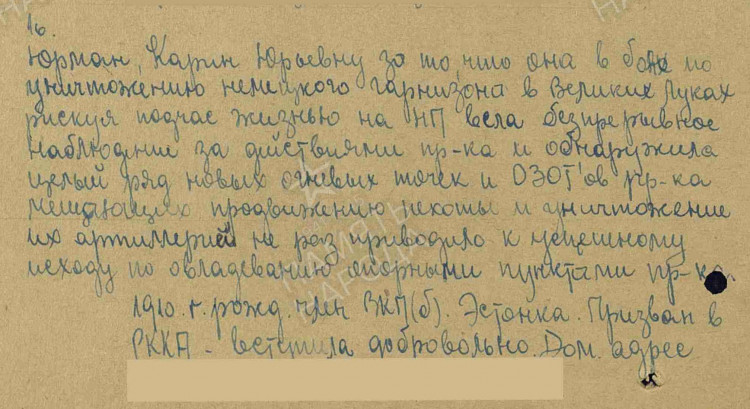 16.
Юрман, Карин Юрьевну за то, что она в боях по
уничтожению немецкого гарнизона в Великих Луках
рискуя подчас жизнью на НП вела безпрерывное
наблюдение за действиями пр-ка и обнаружила
целый ряд новых огневых точек и ДЗОТ'ов пр-ка
мешающих продвижению пехоты и уничтожение
их артиллерией не раз приводило к успешному
исходу по овладеванию опорными пунктами пр-ка.
1910 г. рожд. член ВКП(б). Эстонка. Призван в
РККА - вступила добровольно. Дом. адрес
ПАМЯТЬ
НАРОДА